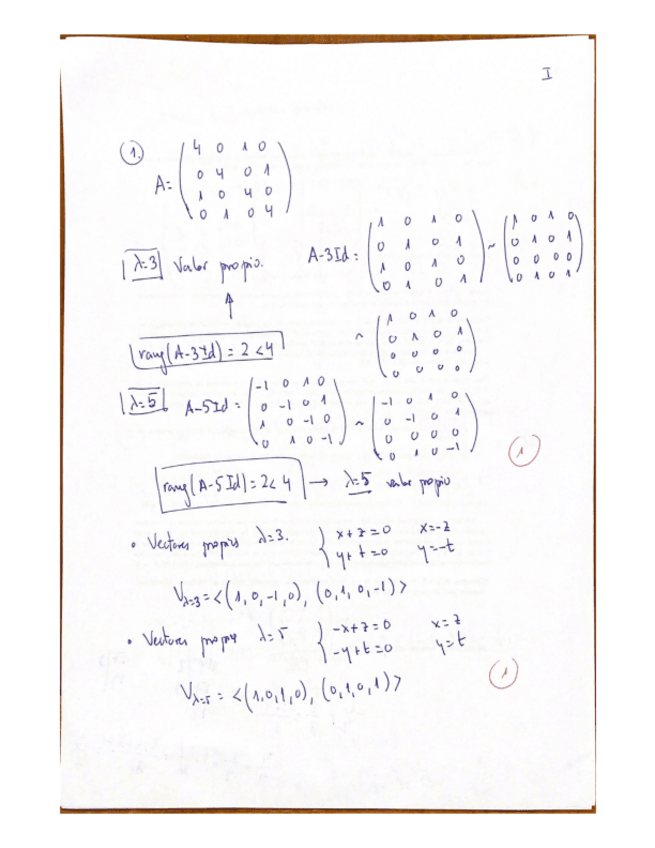 I
1.
A= ( 4 0 1 0
0 4 0 1
1 0 4 0
0 1 0 4 )
λ=3 Valor propio. A-3Id = ( 1 0 1 0
0 1 0 1
1 0 1 0
0 1 0 1 ) ~ ( 1 0 1 0
0 1 0 1
0 0 0 0
0 1 0 1 )
↑
rang(A-3Id) = 2 < 4
~ ( 1 0 1 0
0 1 0 1
0 0 0 0
0 0 0 0 )
λ=5 A-5Id = ( -1 0 1 0
0 -1 0 1
1 0 -1 0
0 1 0 -1 ) ~ ( -1 0 1 0
0 -1 0 1
0 0 0 0
0 1 0 -1 )
1
rang(A-5Id)=2<4 → λ=5 valor propio
• Vectores propios λ=3. { x+z=0 x=-z
y+t=0 y=-t
Vλ=3 = <(1,0,-1,0), (0,1,0,-1)>
• Vectores propios λ=5 { -x+z=0 x=z
-y+t=0 y=t
Vλ=5 = <(1,0,1,0), (0,1,0,1)>
1